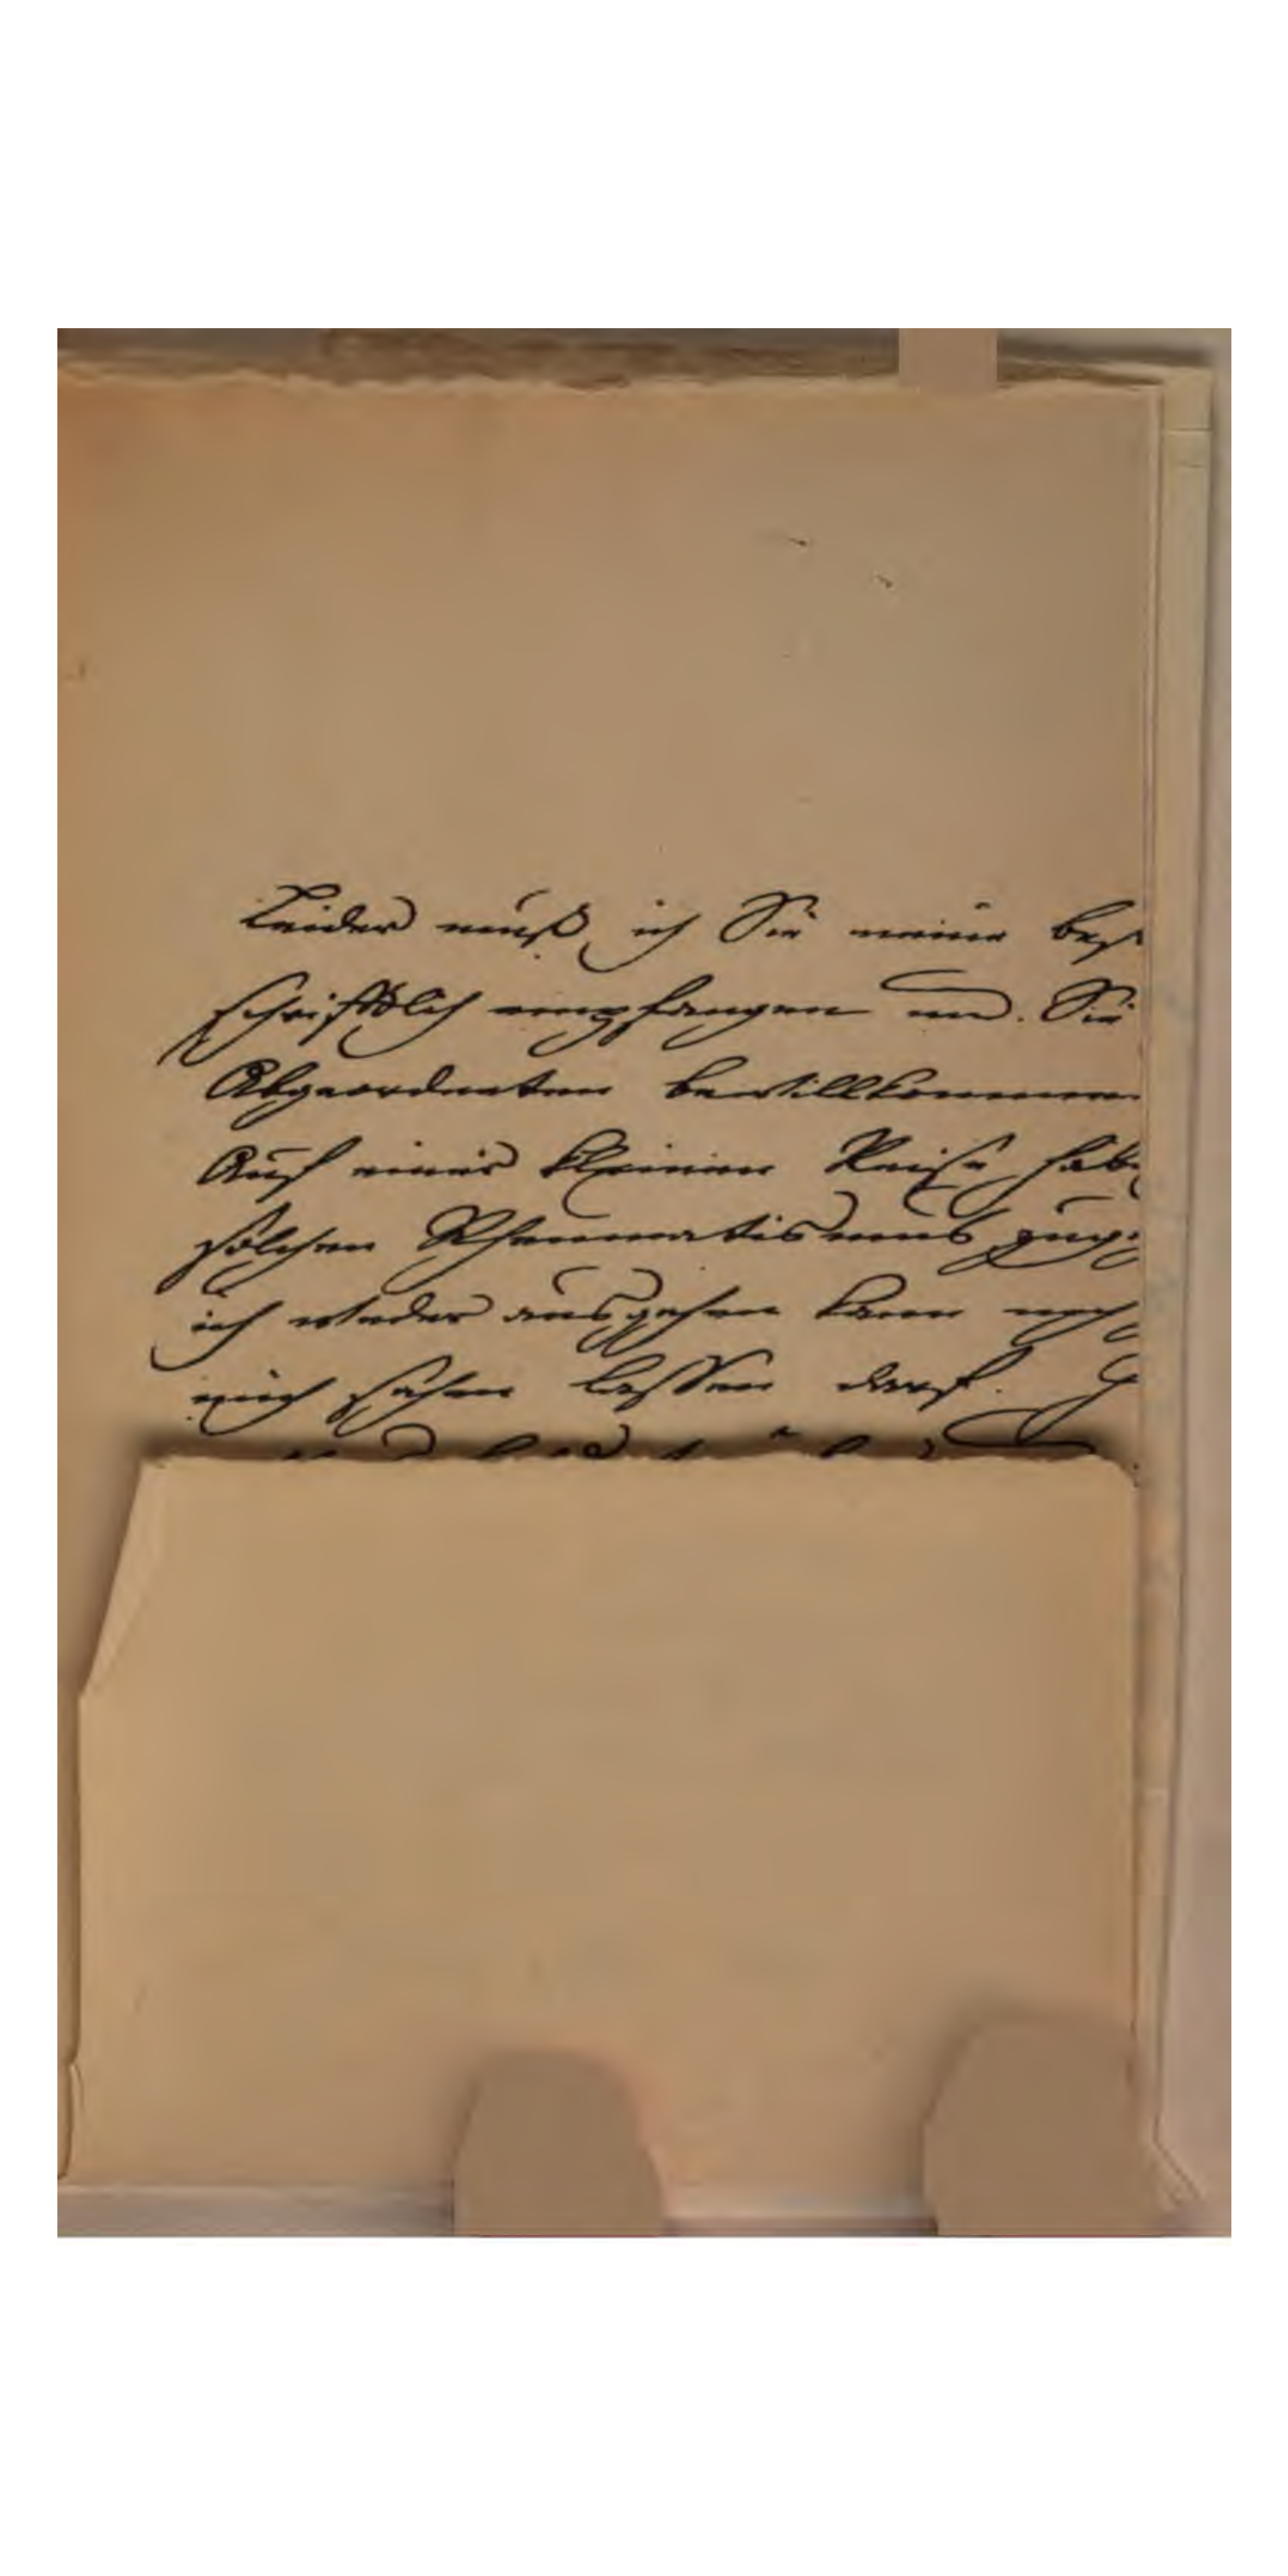 Leider muß ich Sie meine bes
schriftlich empfangen und. Sie
Abgeordneten bewillkommen
Auf einer kleinen Reise habe
solchen Rheumatismus zuge
ich weder ausgehen kann noch
mich sehen lassen darf.